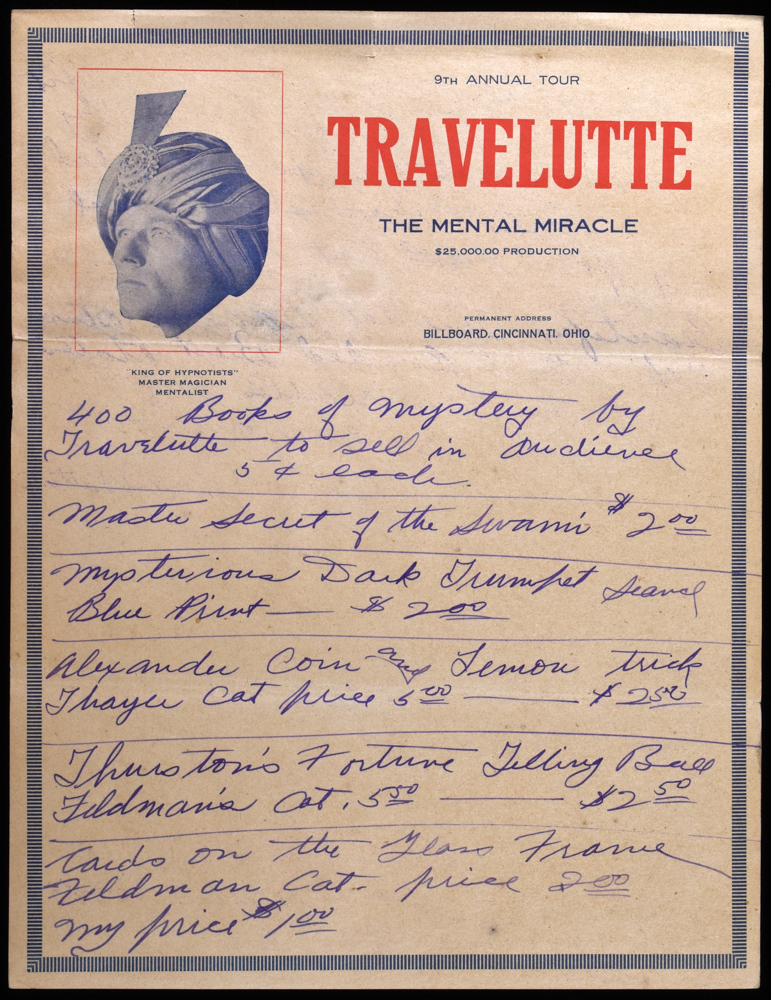 9TH ANNUAL TOUR
TRAVELUTTE
THE MENTAL MIRACLE
$25,000.00 PRODUCTION
PERMANENT ADDRESS
BILLBOARD, CINCINNATI, OHIO
"KING OF HYPNOTISTS"
MASTER MAGICIAN
MENTALIST
400 Books of mystery by
Travelutte to sell in audience
5 ¢ each.
Master Secret of the Swami $2.00
Mysterious Dark Trumpet Seance
Blue Print — $2.00
Alexander Coin and Lemon trick
Thayer Cat price 5.00 — $2.50
Thurston's Fortune Telling Ball
Feldman's Cat. 5.50 — $2.50
Cards on the Glass Frame
Feldman Cat. price 2.00
my price $1.00